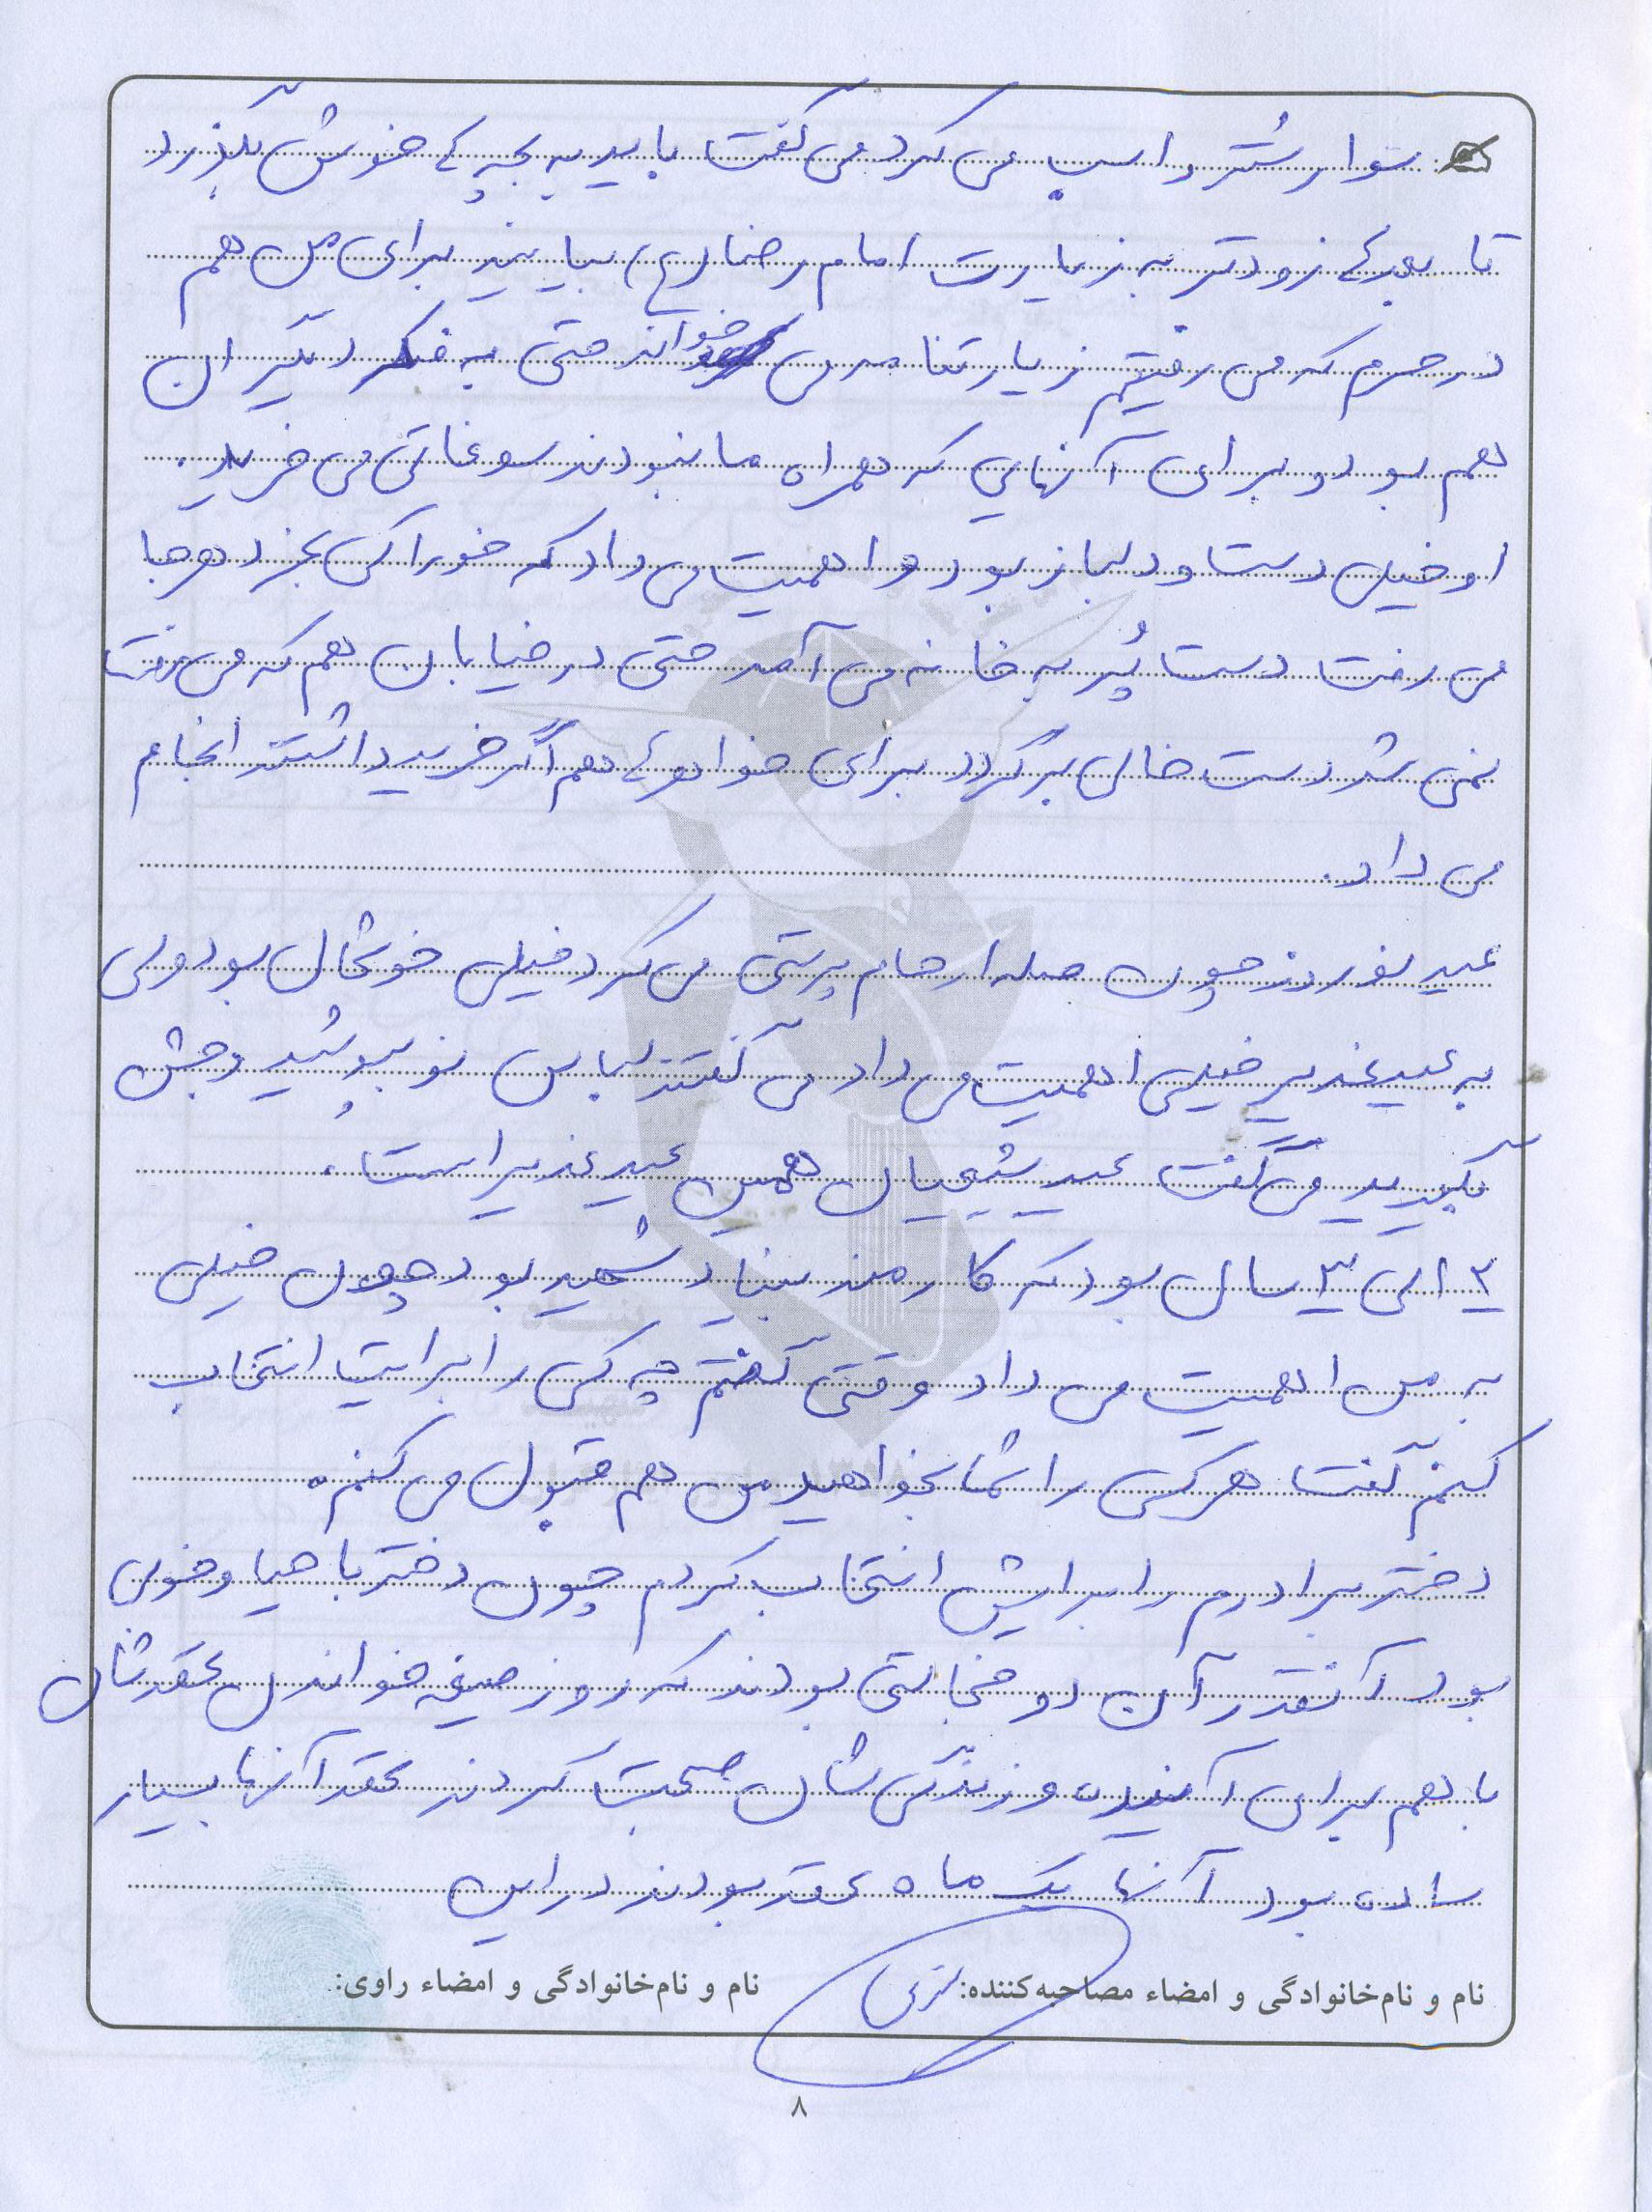 سوار شتر و اسب می کرد می گفت باید به بچه ها خوش بگذرد
تا بچه ها زودتر به زیارت امام رضا (ع) بیایند برای من هم
در حرم که می رفتیم زیارتنامه می خواند حتی به فکر دیگران
هم بود و برای آنهایی که همراه ما نبودند سوغاتی می خرید.
او خیلی دست و دلباز بود و اهمیت می داد که خوراکی بخرد هر جا
می رفت دست پُر به خانه می آمد حتی در خیابان هم که می رفت
نمی شد دست خالی برگردد برای خواهر ها هم اگر خرید داشتند انجام
می داد.
عید نوروز چون صله ارحام پرستی می کرد خیلی خوشحال بود ولی
به عید غدیر خیلی اهمیت می داد می گفتند لباس نو بپوشید و جشن
بگیرید می گفت عید شیعیان همین عید غدیر است.
۲ الی ۳ سال بود که کارمند بنیاد شهید بود چون خیلی
به من اهمیت می داد وقتی گفتم چه کسی را برایت انتخاب
کنم گفت هر کسی را شما بخواهید من هم قبول می کنم.
دختر برادرم را برایش انتخاب کردم چون دختر با حیا و خوبی
بود آنقدر آن دو خجالتی بودند که روز صیغه خواندن عقدشان
با هم برای آینده و زندگی شان صحبت کردند عقد آنها بسیار
ساده بود آنها یک ماه عقد بودند در این
نام و نام‌خانوادگی و امضاء مصاحبه‌کننده:
نام و نام‌خانوادگی و امضاء راوی:
۸